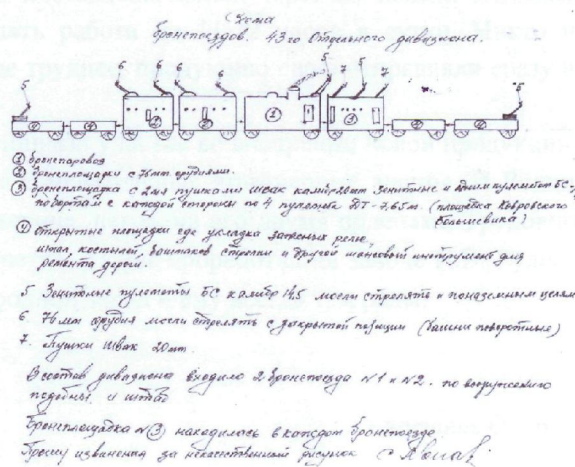 Схема
Бронепоездов. 43го Отдельного дивизиона.
5 6 6 6 6 5 7 5
4 4 2 2 1 3 4 4
① бронепаровоз
② бронеплощадки с 76мт орудиями.
③ Бронеплощадка с 2мя пушками швак калибр 20мт зенитные и одним пулеметом БС,
по бортам с каждой стороны по 4 пулемета ДТ-7,65м. (площадка Ковровского
большевика)
④ открытые площадки где укладка запасных рельс,
шпал, костылей, башмаков стрелки и другой шансовый инструмент для
ремонта дороги.
5 Зенитные пулеметы БС калибр 14,5 могли стрелять и по наземным целям
6 76 мм орудия могли стрелять с закрытой позиции (башни поворотные)
7. Пушки швак 20мт.
В состав дивизиона входило 2 бронепоезда №1 и №2. по вооружению
подобны и штаб
Бронеплощадка №③ находилась в каждом бронепоезде
Прошу извинения за некачественный рисунок